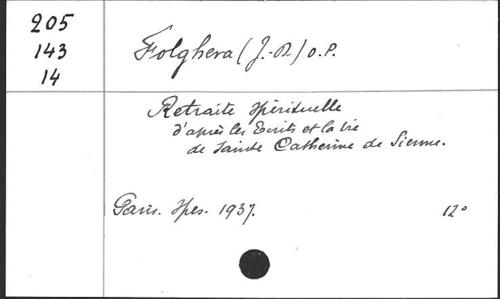 205
143
14
Folghera (J.-D.) O.P.
Retraite spirituelle
d'après les Ecrits et la Vie
de Sainte Catherine de Sienne.
Paris. 1937. 12°